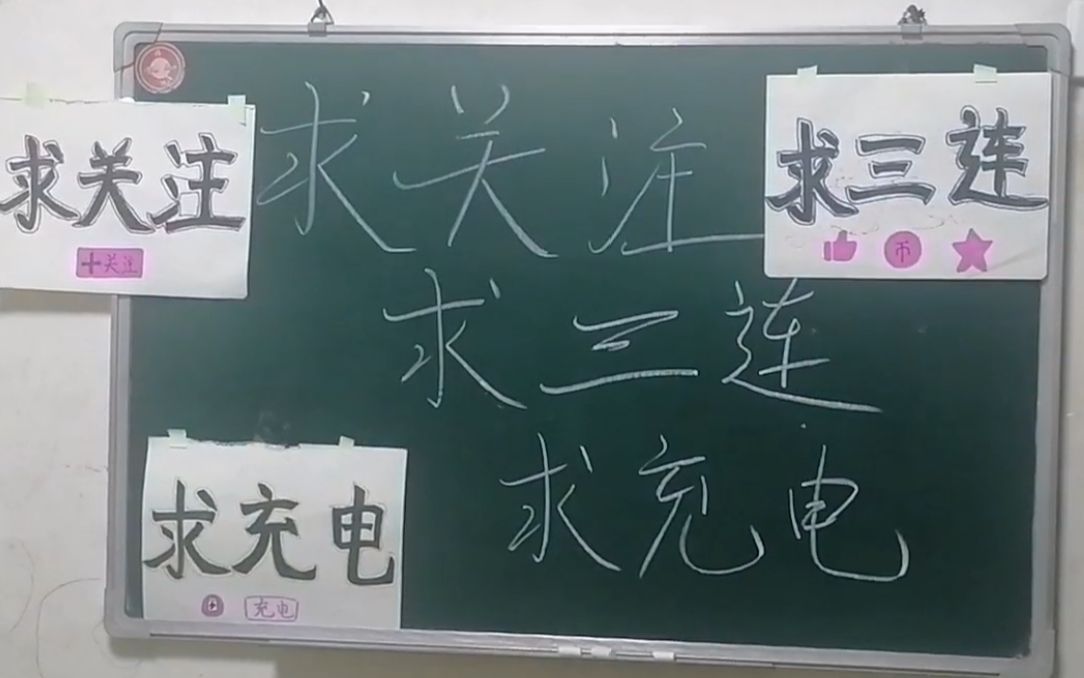 求关注
+关注
求关注
求三连
币
求三连
求充电
充电
求充电